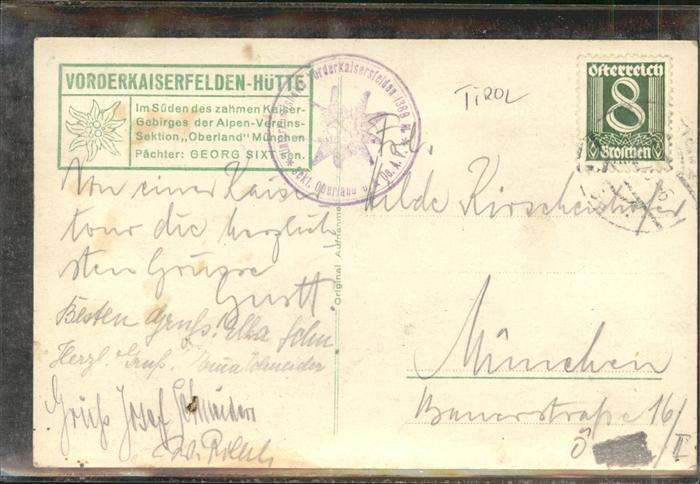 VORDERKAISERFELDEN-HÜTTE
Im Süden des zahmen Kaiser-
Gebirges der Alpen-Vereins-
Sektion „Oberland" München
Pächter: GEORG SIXT sen.
Vorderkaiserfelden 1389 m
Sekt. Oberland
TIROL
Österreich
8
Groschen
Von einer Kaiser
tour die herzlich
sten Grüsse
Gustl
Besten Gruß!
Herzl. Gruß. Schneider
Gruß Josef Schneider
Original Aufnahme
Frl.
Hilde Kirschenhofer
München
Bauerstraße 16/
II
Ö